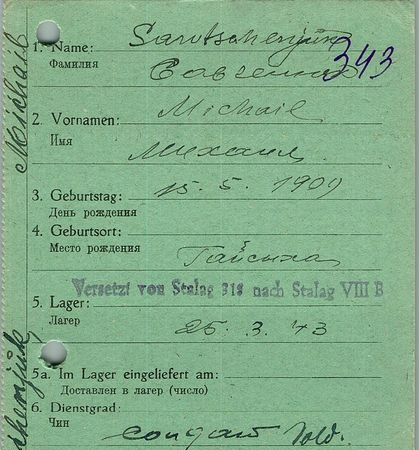 1. Name:
Фамилия
343
2. Vornamen: Michail
Имя
Михаил
3. Geburtstag: 15. 5. 1909
День рождения
4. Geburtsort:
Место рождения
Versetzt von Stalag 318 nach Stalag VIII B
5. Lager:
Лагер
25. 3. 43
5a. Im Lager eingeliefert am:
Доставлен в лагер (число)
6. Dienstgrad:
Чин
солдат Sold.
Michail